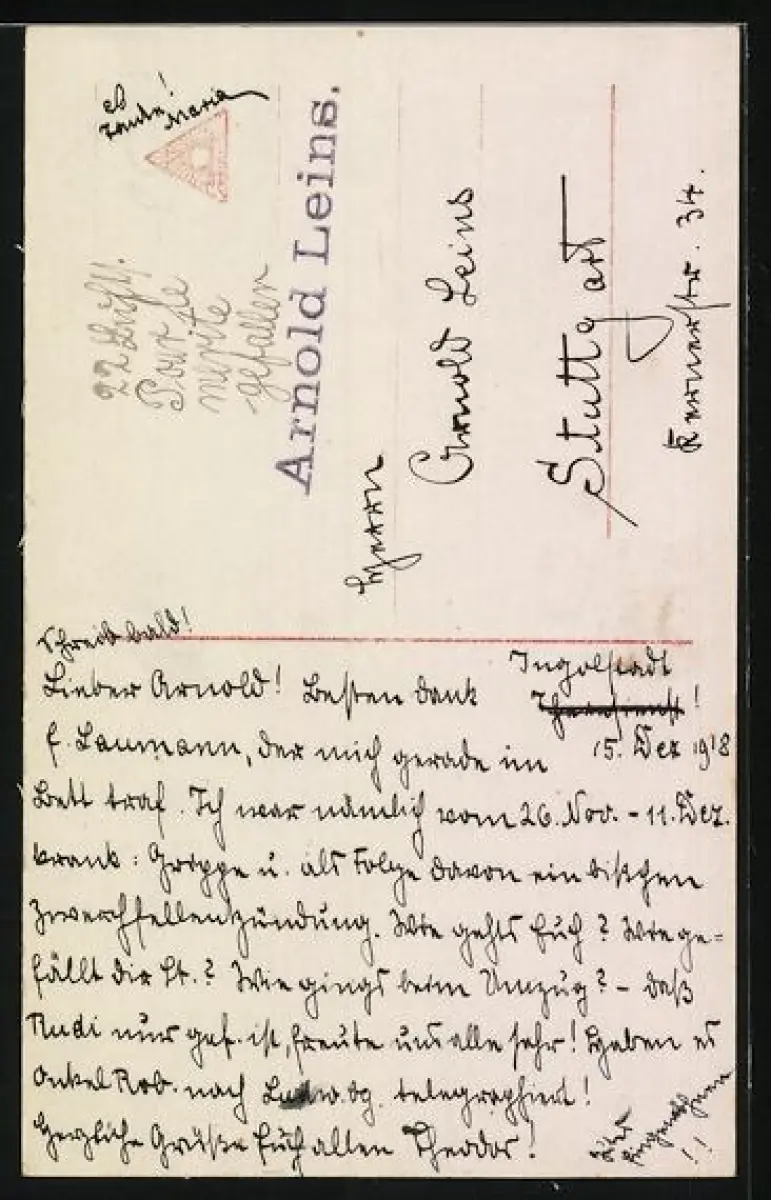 Maria
22 Luft.
Pour le
mérite
gefallen
Arnold Leins.
Herrn
Arnold Leins
Stuttgart
Kernerstr. 34.
Schreib bald!
Ingolstadt
Lieber Arnold! Besten Dank
15. Dez 1918
f. Laumann, der mich gerade im
Bett traf. Ich war nämlich vom 26. Nov. - 11. Dez.
krank: Grippe u. als Folge davon ein bißchen
Zwerchfellentzündung. Wie gehts Euch? Wie ge=
fällt dir St.? Wie gings beim Umzug? - daß
Rudi nur gef. ist, freute uns alle sehr! Haben es
Onkel Rob. nach Ludw.bg. telegraphiert!
Herzliche Grüße Euch allen Theodor!